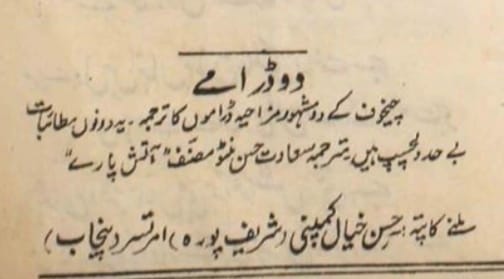 دو ڈرامے
چیخوف کے دو مشہور مزاحیہ ڈراموں کا ترجمہ ۔ یہ دونوں مطائبات
بے حد دلچسپ ہیں ۔ مترجمہ سعادت حسن منٹو مصنف "آتش پارے"
ملنے کا پتہ :۔ حسن خیال کمپنی (شریف پورہ) امرتسر (پنجاب)